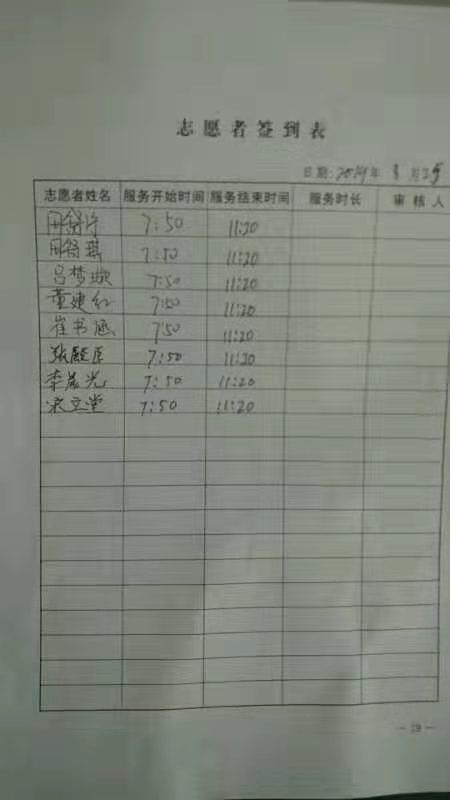 志愿者签到表
日期:2019年 8 月25
志愿者姓名 服务开始时间 服务结束时间 服务时长 审核人
7:50 11:20
7:50 11:20
吕梦 7:50 11:20
董建红 7:50 11:20
崔书涵 7:50 11:20
张殿臣 7:50 11:20
李晨光 7:50 11:20
宋立堂 7:50 11:20
— 19 —